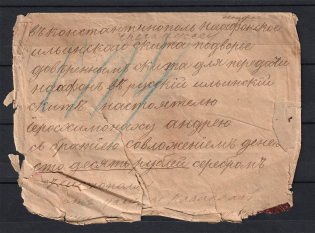 въ Константинополь на афонское
ильинскаго скита подворье
довѣреннымъ скита для передачи
на афонъ въ рускій ильинскій
скитъ настоятелю
іеросхимонаху андрею
съ братіею со вложеніемъ денегъ
сто десять рублей серебромъ